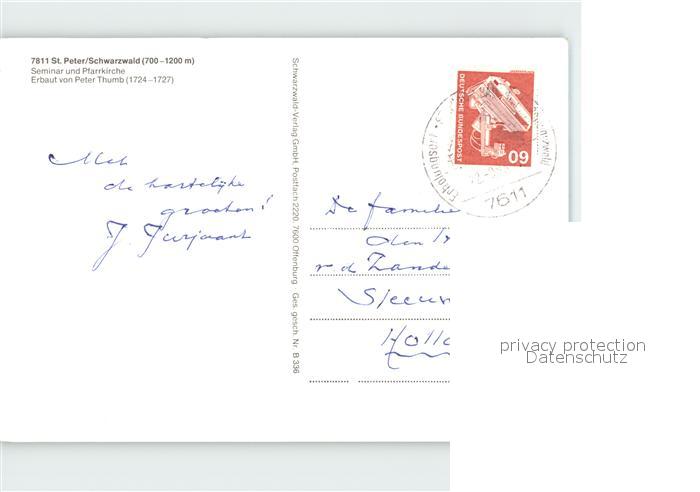 7811 St. Peter/Schwarzwald (700–1200 m)
Seminar und Pfarrkirche
Erbaut von Peter Thumb (1724–1727)
Met
de hartelijke
groeten!
J.
Schwarzwald-Verlag GmbH, Postfach 2220, 7600 Offenburg · Ges. gesch. Nr. B 336
DEUTSCHE BUNDESPOST
60
7611
De familie
v d Zande
Holl
privacy protection
Datenschutz